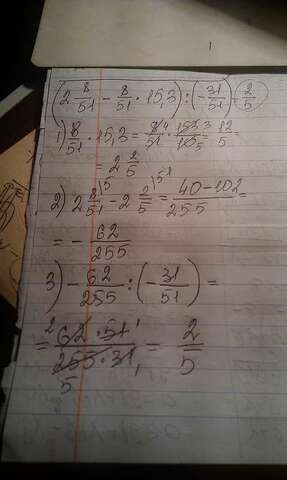 (2 8/51 - 8/51 · 15,3) : (-31/51) = 2/5
1) 8/51 · 15,3 = 8/51 · 153/10 = 12/5 =
= 2 2/5
2) 2 8/51 - 2 2/5 = 40-102/255 =
= - 62/255
3) - 62/255 : (-31/51) =
= 62 · 51/255 · 31 = 2/5